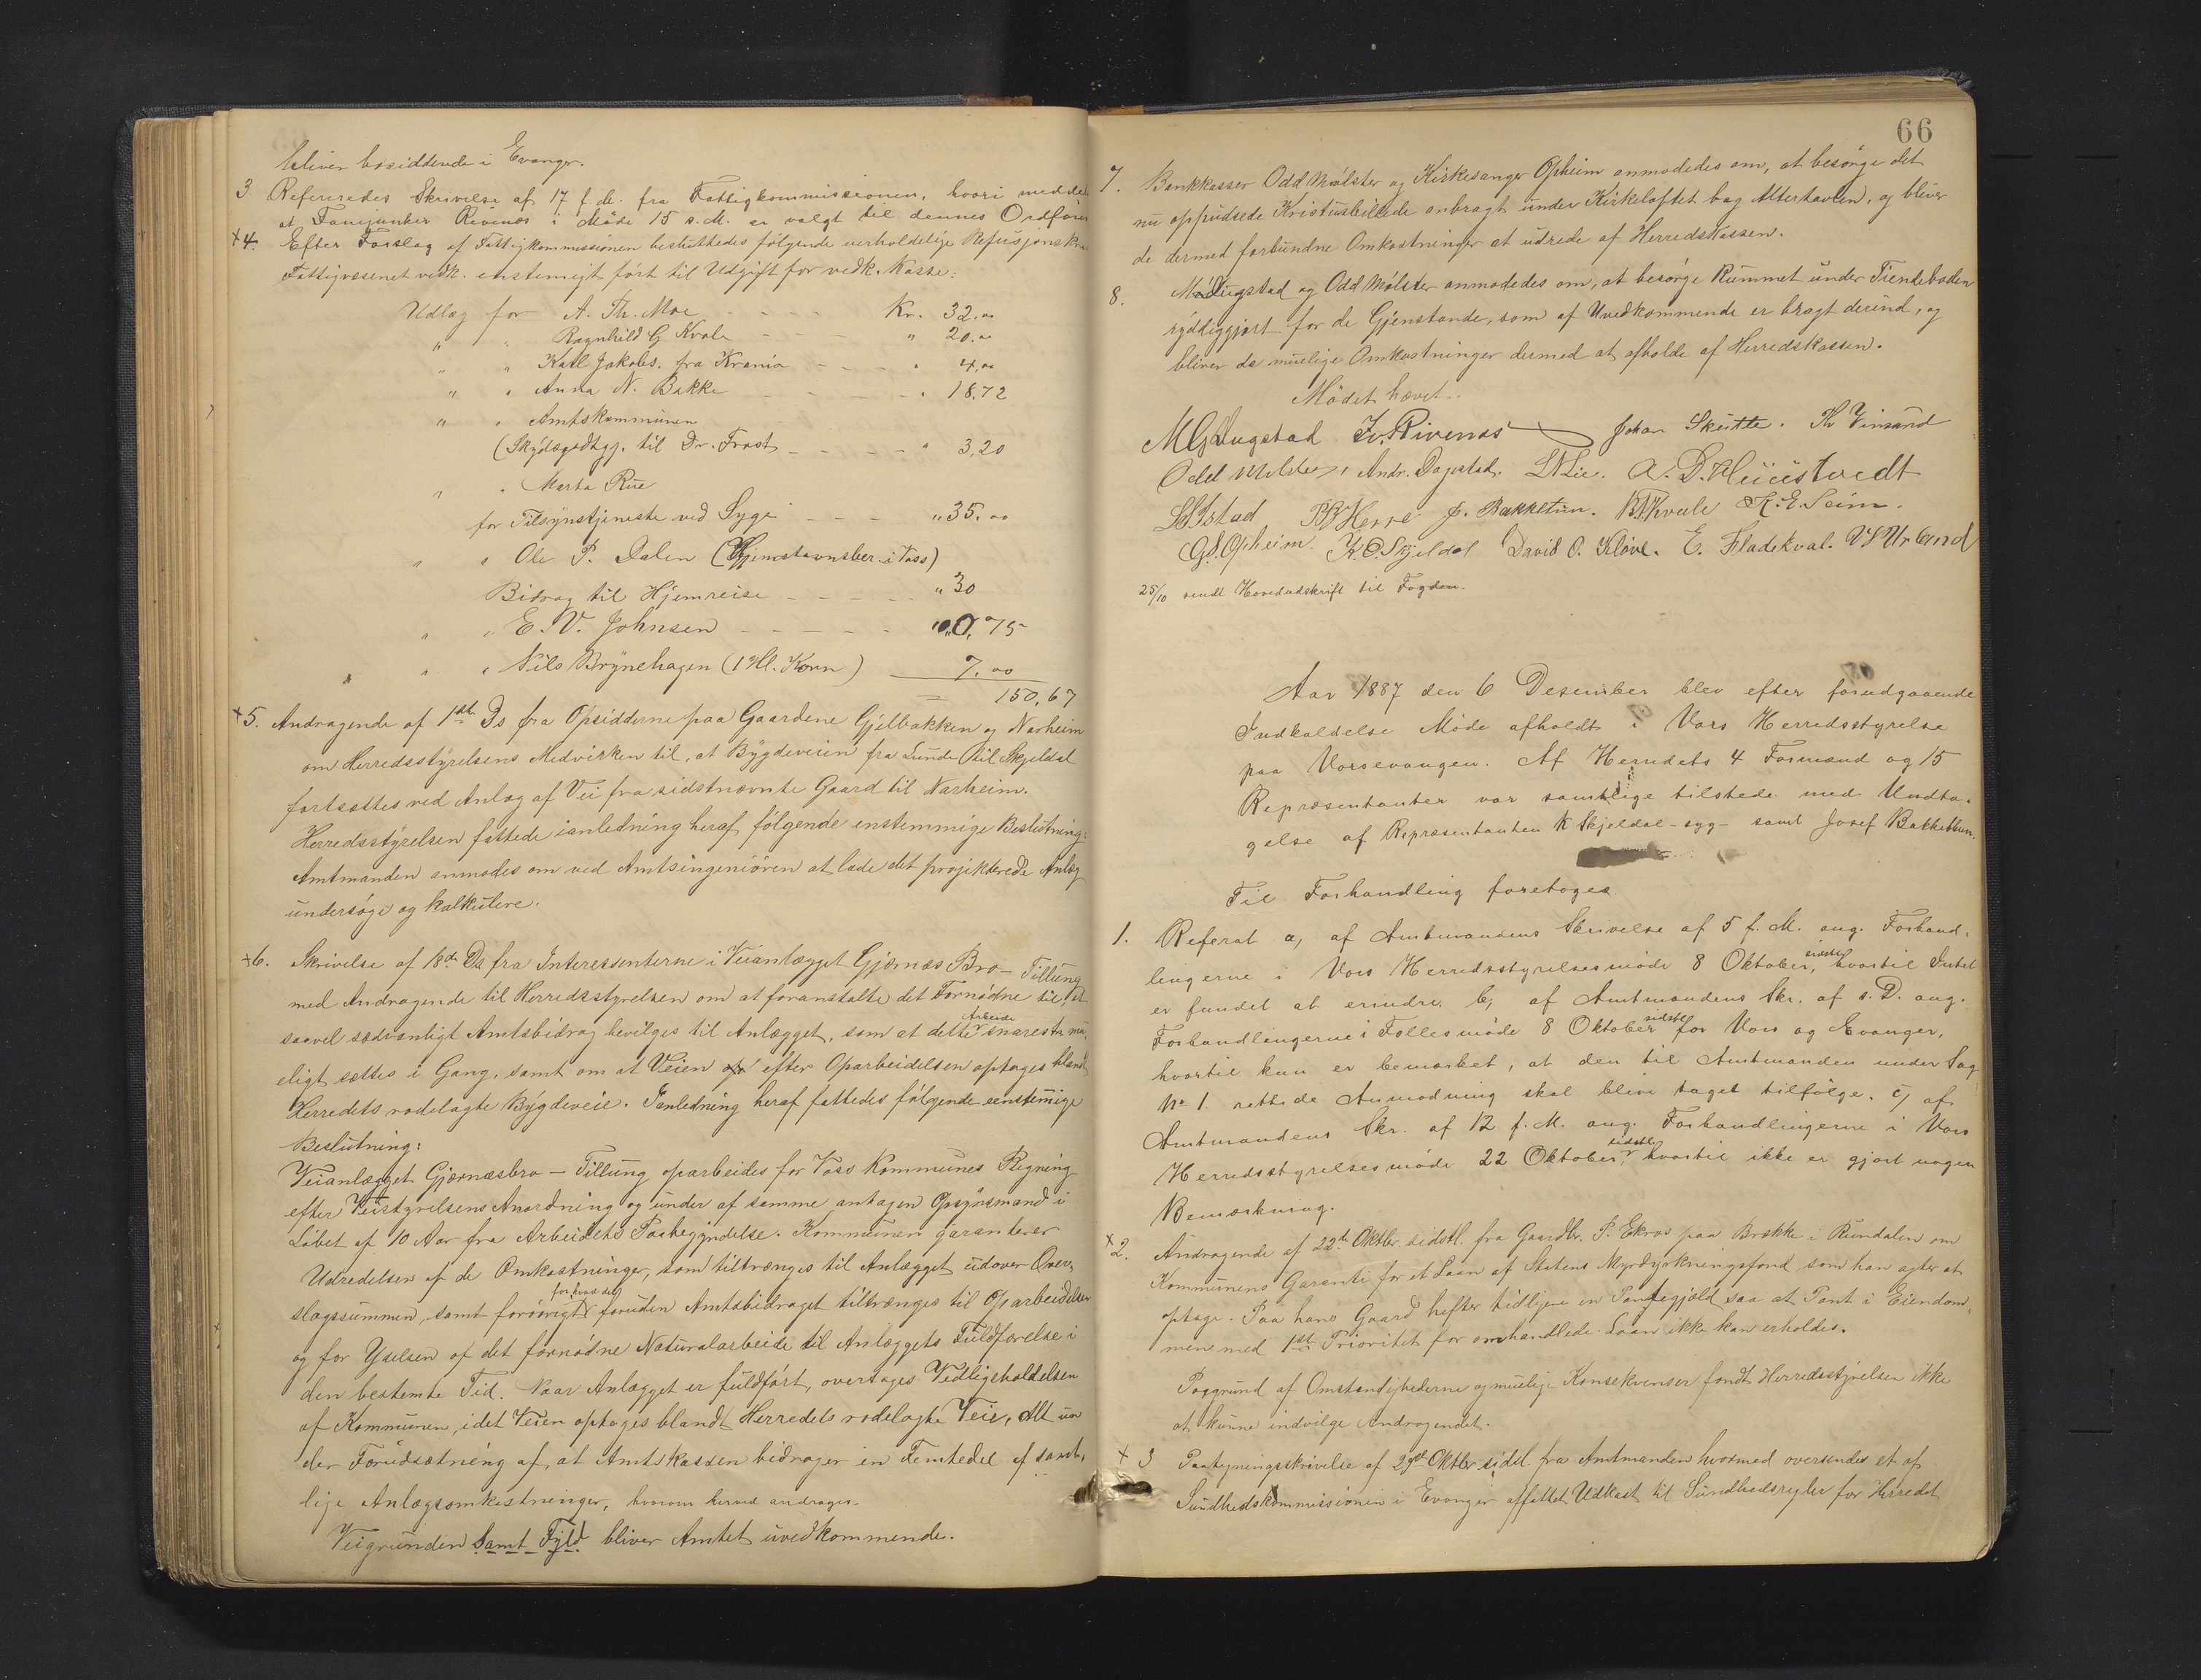 bliver bosiddende i Evanger.
3 Refereredes Skrivelse af 17 f. de. fra Fattigkommissionen, hvori meddeles
at Fanejunker Rivenæs i Møde 15 s. M. er valgt til dennes Ordfører
+4. Efter Forslag af Fattigkommissionen besluttedes følgende uerholdelige Refusjonskrav
Fattigvæsenet vedk. enstemigt ført til Udgift for vedk. Kasse:
Udlæg for A. Th. Moe - - - - Kr. 32.00
" " Ragnhild G Kvale - - " 20.00
" " Karl Jakobs. fra Krania - - - " 4.00
" " Anna N. Bakke - - - - " 18,72
" " Amtskommunen
(Skydsgodtgj. til Dr. Frost - - - - " 3,20
" " Marta Rue
for Tilsynstjeneste ved Syge - - - " 35.00
" " Ole P. Dalen (Hjemstavnsber. i Voss)
Bidrag til Hjemreise - - - - - " 30
" " E. V. Johnsen - - - - - " 0,75
" " Nils Brynehagen (1 Hl. Korn) 7.00
= 150,67
+5. Andragende af 1ste Ds fra Opsidderne paa Gaardene Gjelbakken og Narheim
om Herredsstyrelsens Medvirken til, at Bygdeveien fra Lunde til Skjeldal
fortsættes ved Anlæg af Vei fra sidstnævnte Gaard til Narheim.
Herredsstyrelsen fattede ianledning heraf følgende enstemmige Beslutning:
Amtmanden anmodes om ved Amtsingeniøren at lade det projekterede Anlæg
undersøge og kalkulere.
+6. Skrivelse af 18de Ds fra Interessenterne i Veianlægget Gjærnæs Bro - Tillung
med Andragende til Herredsstyrelsen om at foranstalte det Fornødne til at
saavel sædvanligt Amtsbidrag bevilges til Anlægget, som at dette Arbeide snarest mu-
eligt sættes i Gang, samt om at Veien efter Oparbeidelsen optages blandt
Herredets rodelagte Bygdeveie. Ianledning heraf fattedes følgende eenstemige
Beslutning:
Veianlægget Gjernæsbro - Tillung oparbeides for Voss Kommunes Regning
efter Veistyrelsens Anordning og under af samme antagen Opsynsmand i
Løbet af 10 Aar fra Arbeidets Paabegyndelse. Kommunen garanterer
Udredelsen af de Omkostninger, som tiltrænges til Anlægget udover Over-
slagssummen, samt forøvrigt for hvad der foruden Amtsbidraget tiltrænges til Oparbeidelsen
og for Ydelsen af det fornødne Naturalarbeide til Anlæggets Fuldførelse i
den bestemte Tid. Naar Anlægget er fuldført, overtages Vedligeholdelsen
af Kommunen, idet Veien optages blandt Herredets rodelagte Veie, Alt un
der Forudsætning af, at Amtskassen bidrager en Femtedel af samt-
lige Anlægsomkostninger, hvorom herved andrages.
Veigrunden samt Fyld bliver Amtet uvedkommende.
66
7. Bankkasser Odd Mølster og Kirkesanger Opheim anmodedes om, at besørge det
nu oppudsede Kristusbillede anbragt under Kirkeloftet bag Altertavlen, og bliver
de dermed forbundne Omkostninger at udrede af Herredskassen.
8. M. Lugstad og Odd Mølster anmodedes om, at besørge Rummet under Tiendeboden
ryddiggjort for de Gjenstande, som af Uvedkommende er bragt derind, og
bliver de muelige Omkostninger dermed at afholde af Herredskassen.
Mødet hævet.
M G Lugstad Iv. Rivenæs Johan Skutte. Th Vinsand
Odd Mølster, Andr. Dagestad. L N Lie.
J. Bakketun. B.T. Kvale K. E. Seim.
G. S. Opheim. K. O. Skjeldal David O. Kløve. E. Fladekval.
25/10 sendt Hovedudskrift til Fogden.
Aar 1887 den 6 Desember blev efter forudgaaende
Indkaldelse Møde afholdt i Vors Herredsstyrelse
paa Vorsevangen. Af Herredets 4 Formænd og 15
Repræsentanter var samtlige tilstede med Undta-
gelse af Repræsentanten K Skjeldal - syg - samt Josef Bakkethun.
Til Forhandling foretoges
1. Referat a, af Amtmandens Skrivelse af 5 f. M. ang. Forhand-
lingerne i Vors Herredsstyrelsesmøde 8 Oktober sidstl., hvortil Intet
er fundet at erindre. b, af Amtmandens Skr. af s. D. ang.
Forhandlingerne i Fællesmøde 8 Oktober sidstl. for Vors og Evanger,
hvortil kun er bemærket, at den til Amtmanden under Sag
No 1. rettede Anmodning skal blive taget tilfølge. c, af
Amtmandens Skr. af 12 f. M. ang. Forhandlingerne i Vors
Herredsstyrelsesmøde 22 Oktober sidstl., hvortil ikke er gjort nogen
Bemærkning.
+2. Andragende af 22de Oktbr. sidstl. fra Gaardbr. P. Ekros paa Brække i Rundalen om
Kommunens Garanti for et Laan af Statens Myrdyrkningsfond som han agter at
optage. Paa hans Gaard hefter tidligere en Pantegjæld saa at Pant i Eiendom-
men med 1ste Prioritet for omhandlede Laan ikke kan erholdes.
Paagrund af Omstændighederne og muelige Konsekvenser fandt Herredsstyrelsen ikke
at kunne indvilge Andragendet.
+ 3 Paategningsskrivelse af 29de Oktbr sidstl. fra Amtmanden hvormed oversendes et af
Sundhedskommissionen i Evanger affattet Udkast til Sundhedsregler for Herredet